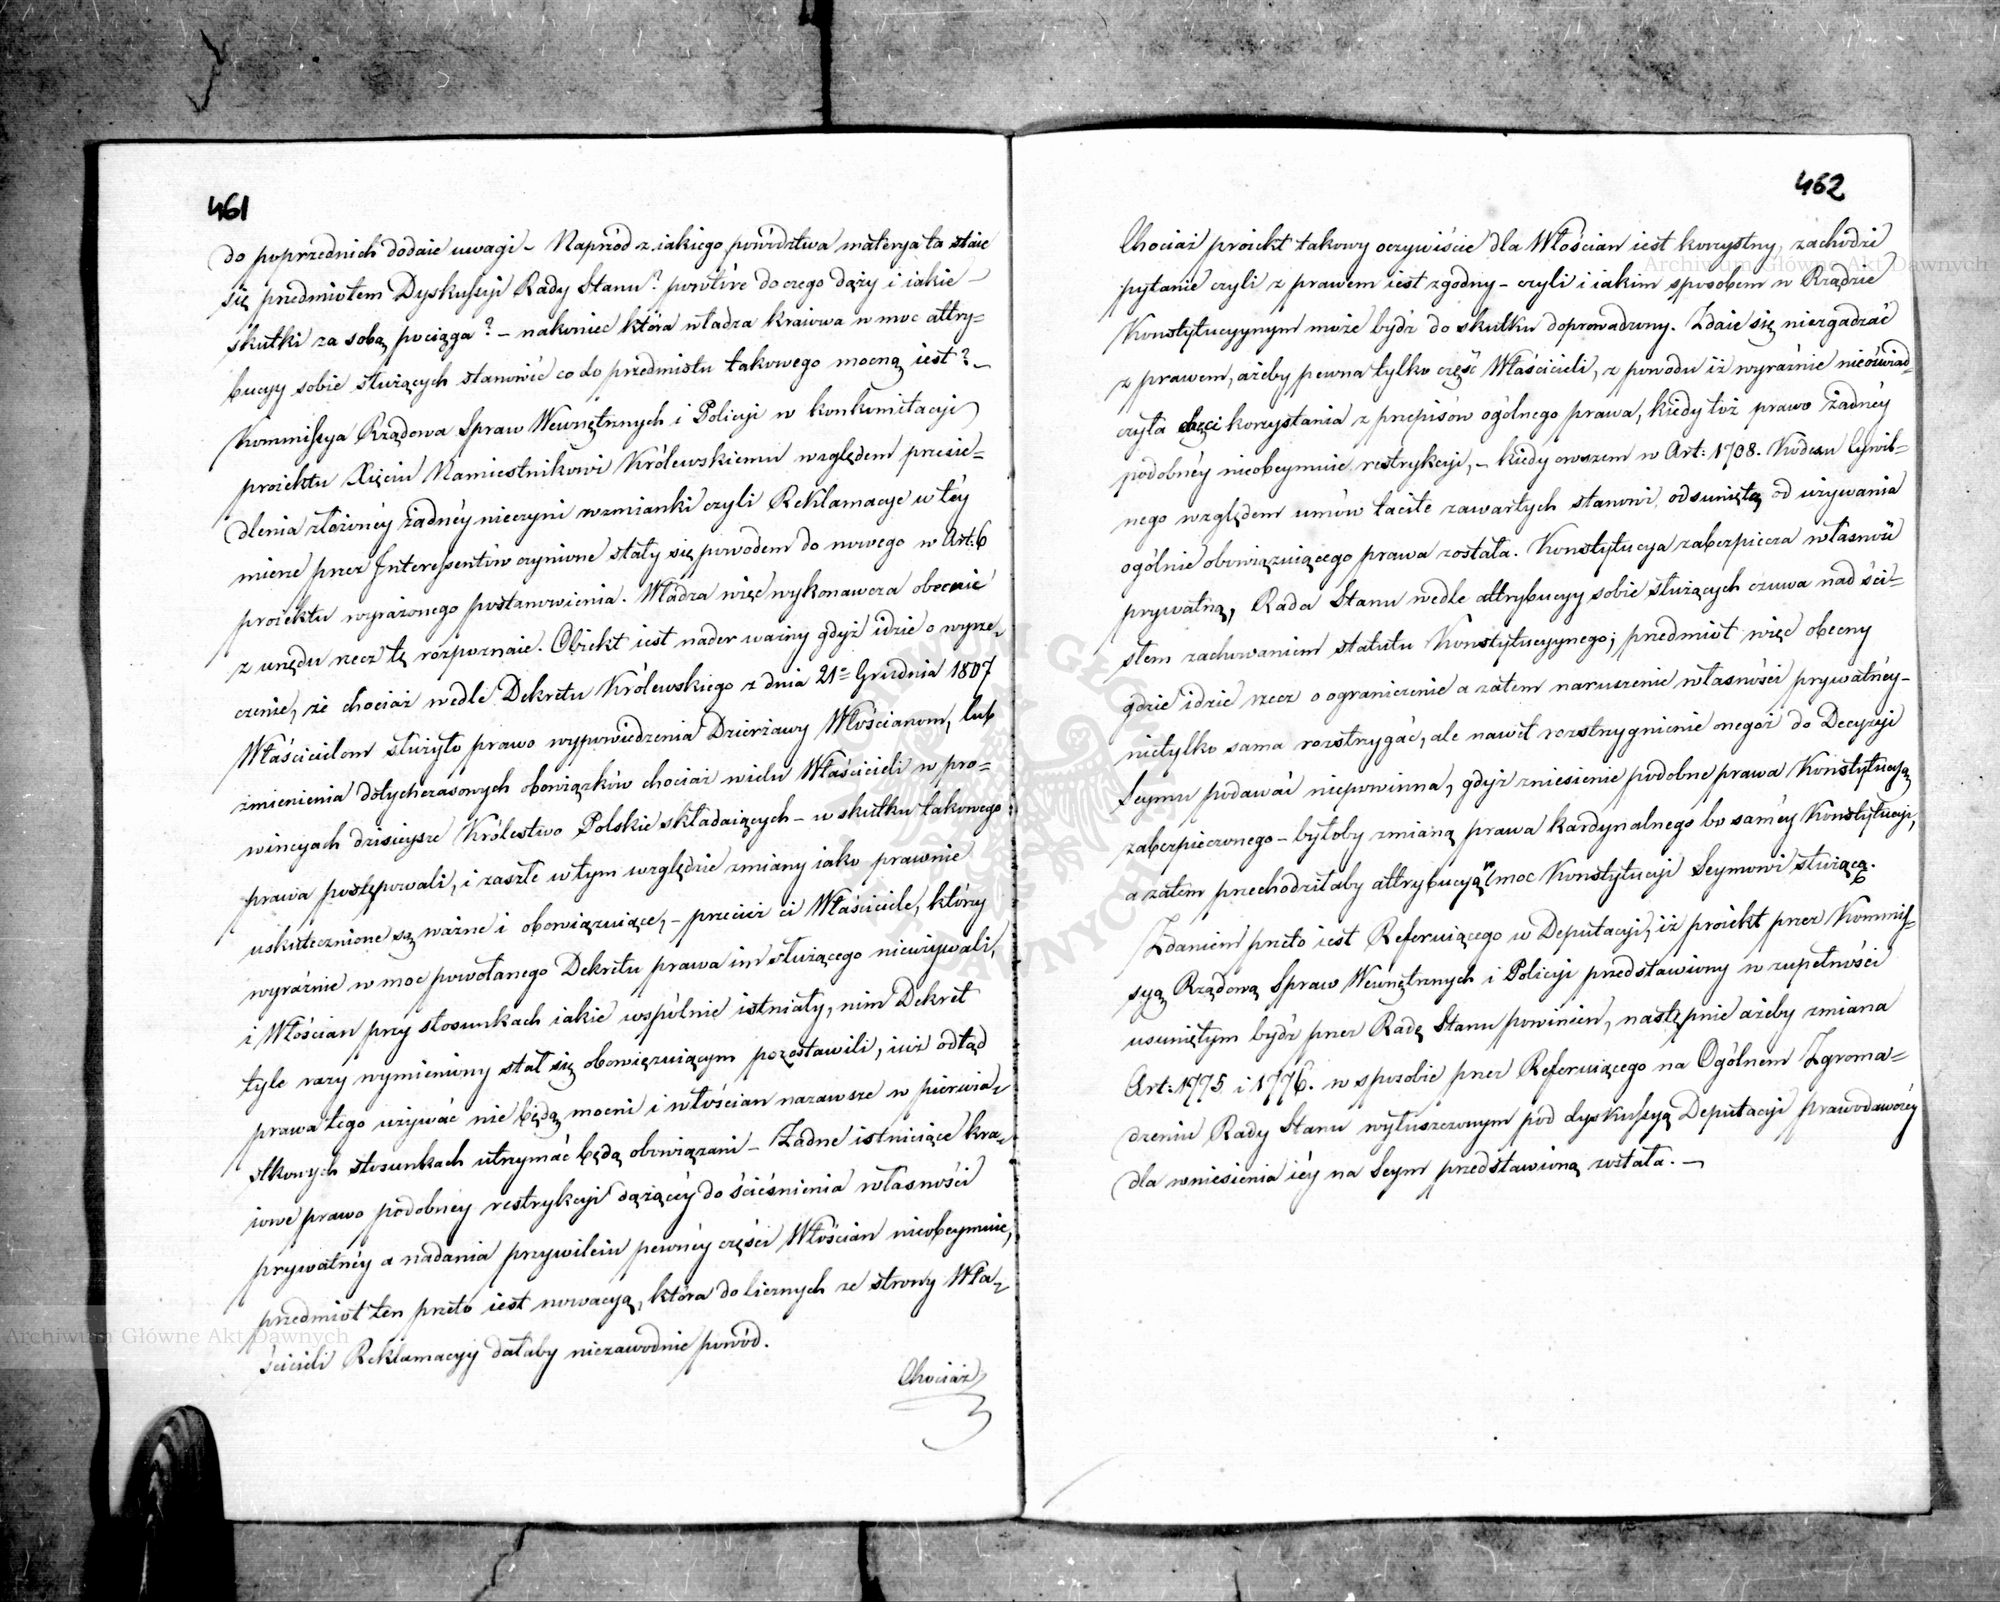 461
do poprzednich dodaie uwagi – Naprzód z iakiego powództwa materya ta staie
się przedmiotem Dyskussyi Rady Stanu? powtóre do czego dąży i iakie –
skutki za sobą pociąga? – nakoniec która władza kraiowa w moc attry=
bucyy sobie służących stanowić co do przedmiotu takowego mocną iest? –
Kommissya Rządowa Spraw Wewnętrznych i Policyi w konkomitacyi
proiektu Xięciu Namiestnikowi Królewskiemu względem przesie=
dlenia złożonéy żadnéy nieczyni wzmianki czyli Reklamacye w téy
mierze przez Interessentów czynione stały się powodem do nowego w Art: 6
proiektu wyrażonego postanowienia. Władza więc wykonawcza obecnie
z urzędu rzecz tę rozpoznaie. Obiekt iest nader ważny gdyż idzie o wyrze=
czenie, że chociaż wedle Dekretu Królewskiego z dnia 21= Grudnia 1807
Właścicielom służyło prawo wypowiedzenia Dzierżawy Włościanom, lub
zmienienia dotychczasowych obowiązków chociaż wielu Właścicieli w pro=
wincyach dzisieysze Królestwo Polskie składaiących – w skutku takowego
prawa postępowali, i zaszłe w tym względzie zmiany iako prawnie
uskutecznione są ważne i obowiązuiące, – przecież ci Właściciele, którzy
wyraźnie w moc powołanego Dekretu prawa im służącego nieużywali,
i Włościan przy stosunkach iakie wspólnie istniały, nim Dekret
tyle razy wymieniony stał się obowięzuiącym pozostawili, iuż odtąd
prawa tego używać nie będą mocni i włościan nazawsze w pierwia=
stkowych stosunkach utrzymać będą obowiązani – Żadne istnieiące kra=
iowe prawo podobnéy restrykcyi dążącéy do ścieśnienia własności
prywatnéy a nadania przywileiu pewnéy części Włościan nieobeymuie,
przedmiot ten przeto iest nowacyą, która do licznych ze strony Wła=
ścicieli Reklamacyy dałaby niezawodnie powód.
Chociaż
462
Chociaż proiekt takowy oczywiście dla Włościan iest korzystny, zachodzi
pytanie czyli z prawem iest zgodny – czyli i iakim sposobem w Rządzie
Konstytucyynym może bydź do skutku doprowadzony. Zdaie się niezgadzać
z prawem, ażeby pewna tylko część Właścicieli, z powodu iż wyraźnie nieoświad=
czyła chęci korzystania z przepisów ogólnego prawa, kiedy toż prawo żadnéy
podobnéy nieobeymuie restrykcyi, – kiedy owszem w Art: 1708. Kodexu Cywil=
nego względem umów tacite zawartych stanowi, odsuniętą od używania
ogólnie obowiązuiącego prawa została. Konstytucya zabezpiecza własność
prywatną, Rada Stanu wedle attrybucyy sobie służących czuwa nad ści=
słem zachowaniem statutu Konstytucyynego; przedmiot więc obecny
gdzie idzie rzecz o ograniczenie a zatem naruszenie własności prywatnéy –
nietylko sama rozstrzygać, ale nawet rozstrzygnienie onegoż do Decyzyi
Seymu podawać niepowinna, gdyż zniesienie podobne prawa Konstytucyą
zabezpieczonego – byłoby zmianą prawa kardynalnego bo saméy Konstytucyi,
a zatém przechodziłaby attrybucyą w moc Konstytucyi Seymowi służącą.
Zdaniem przeto iest Referuiącego w Deputacyi, iż proiekt przez Kommis=
syą Rządową Spraw Wewnętrznych i Policyi przedstawiony w zupełności
usuniętym bydź przez Radę Stanu powinien, następnie ażeby zmiana
Art: 1775 i 1776. w sposobie przez Referuiącego na Ogólnem Zgroma=
dzeniu Rady Stanu wyłuszczonym pod dyskussyą Deputacyi prawodawczéy
dla wniesienia iéy na Seym przedstawioną została. –
Archiwum Główne Akt Dawnych
Archiwum Główne Akt Dawnych